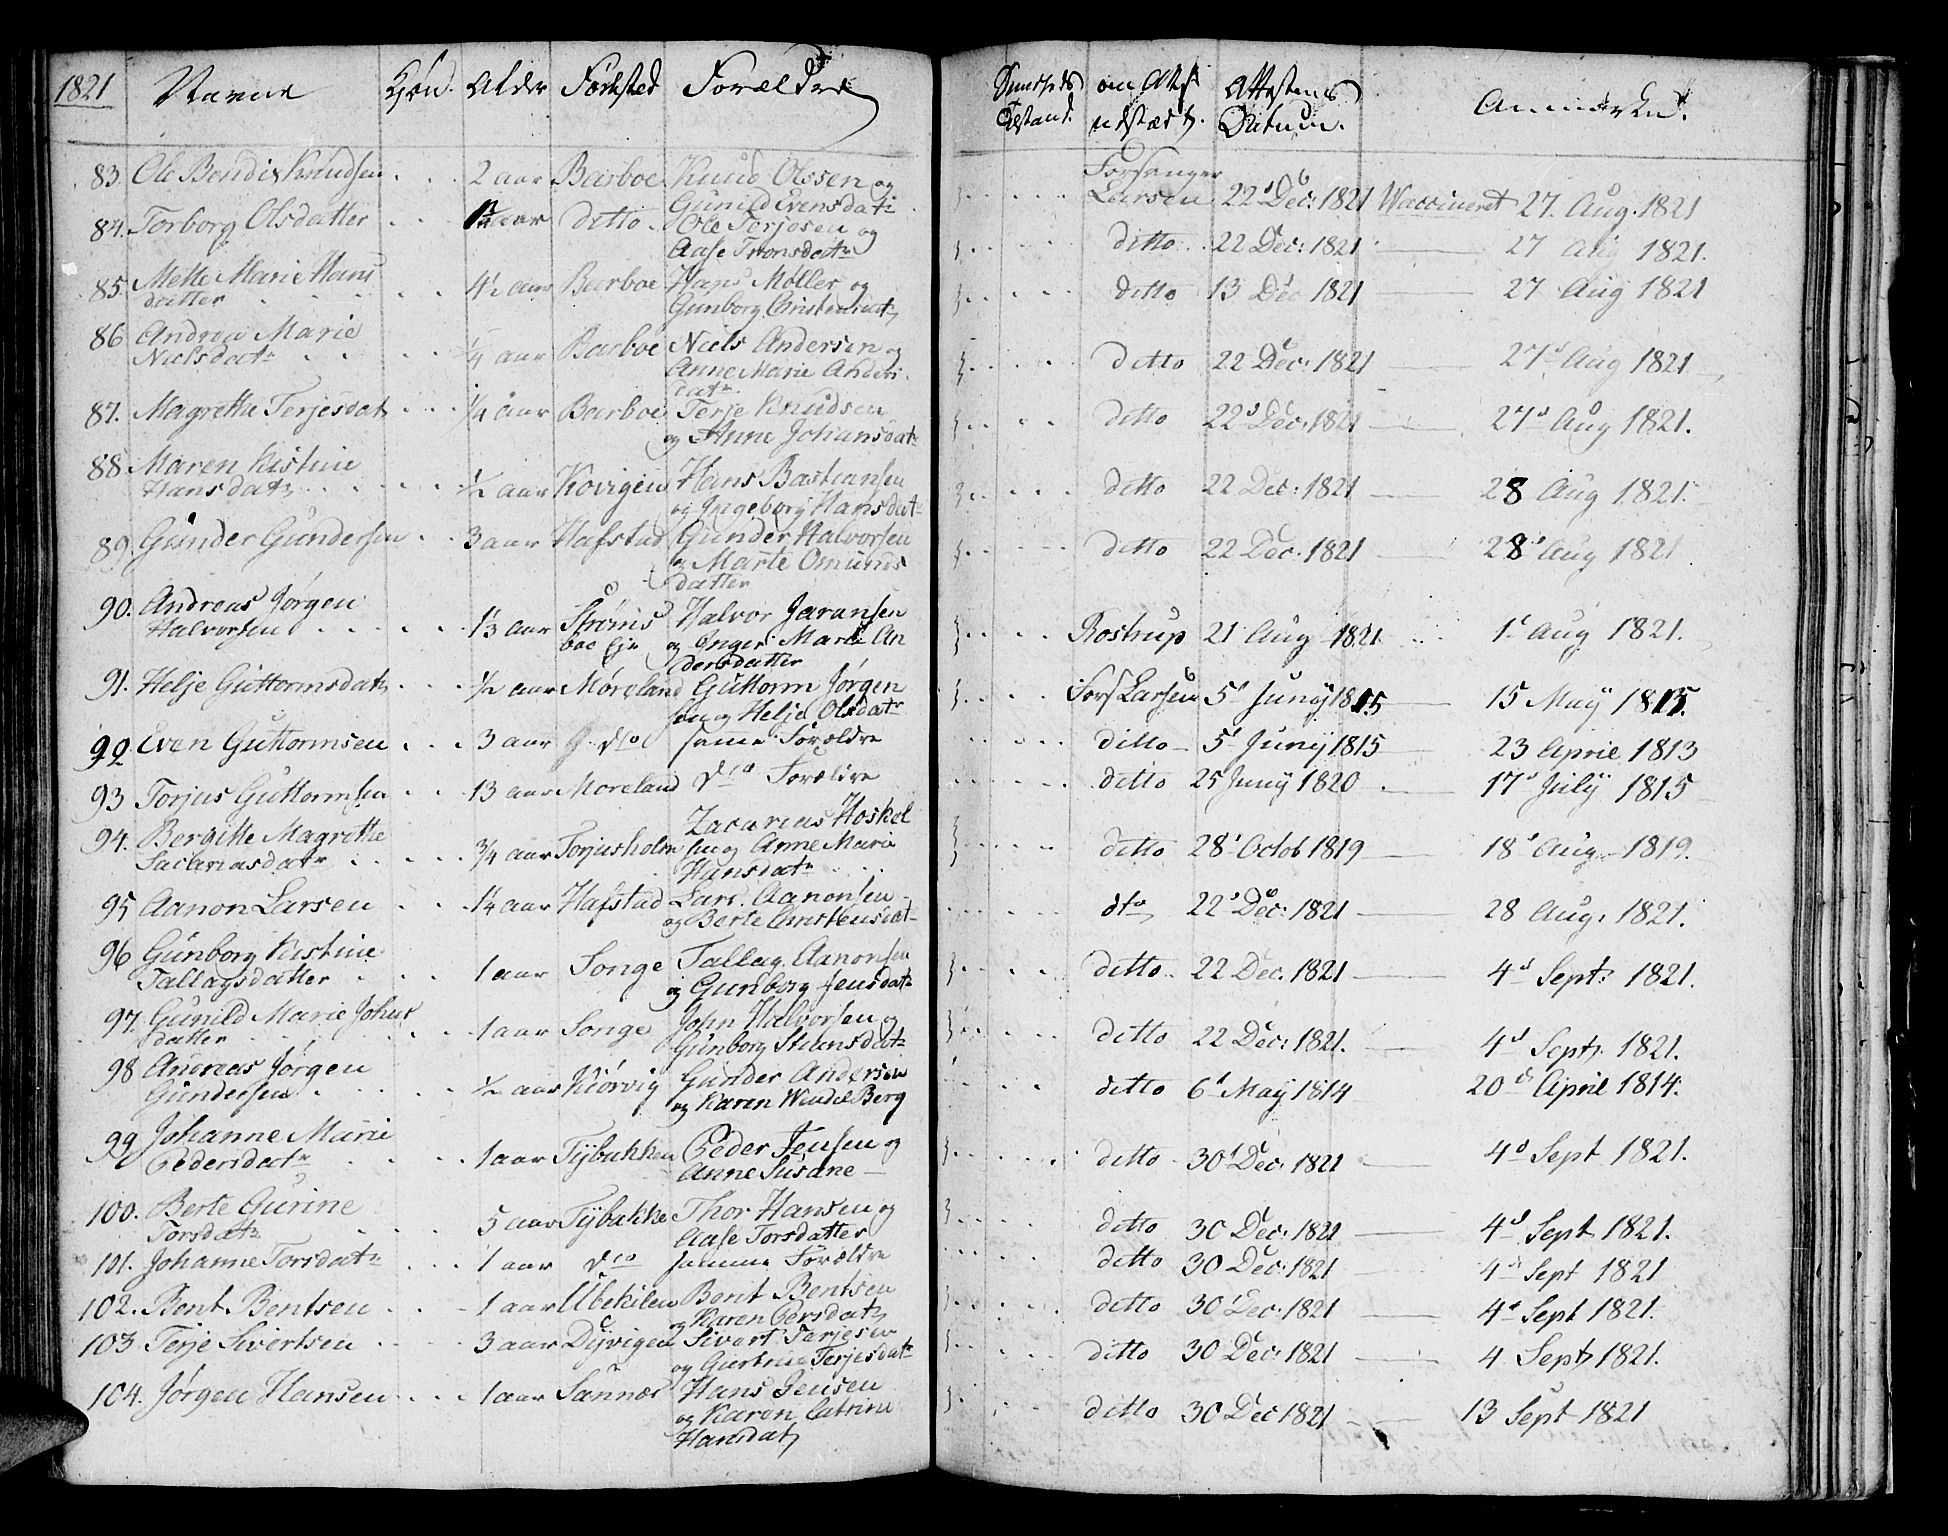 1821 Navne Kjøn. Alder Fødested Forældre Sundheds Tilstand. om Attest udstædt. Attestens Datum. Anmærkn.
83. Ole Bendix Knudsen 2 aar Barboe Knud Olsen og Forsanger
Gunild Evensdatr Larsen 22d Dec: 1821 Waccineret 27. Aug. 1821
84. Torborg Olsdatter 1/4 aar ditto Ole Terjesen og
Aase Tronsdatr ditto 22 Dec: 1821 27 Aug 1821.
85. Mette Marie Hans 4½ aar Barboe Hans Møller og ditto 13 Dec 1821 27 Aug 1821
datter Gunborg Christensdatr
86 Andrea Marie Barboe Niels Andersen og
Nielsdatr 1/4 aar Anne Marie Anders ditto 22 Dec: 1821 27d Aug 1821
datr
87. Magrethe Terjesdatr 1/4 aar Barboe Terje Knudsen ditto 22d Dec: 1821 27d Aug 1821.
og Anne Johansdatr
88 Maren Kistine Hans Bastiansen
Hansdatr ½ aar Kovigen og Ingeborg Hansdatr ditto 22 Dec: 1821 28 Aug 1821.
89. Gunder Gundersen 3 aar Hafstad Gunder Halvorsen
og Marte Omunds ditto 22 Dec. 1821 28d Aug 1821
datter
90. Andreas Jørgen Strøms Halvor Jaransen
Halvorsen 1/3 aar boe Eje og Inger Marie An Rostrup 21 Aug 1821. 1d Aug 1821.
dersdatter
91. Helje Guttormsdatr ½ aar Møreland Guttorm Jørgen Fors Larsen 5d Junÿ 1815 15 Maÿ 1815.
sen og Helje Olsdatr
92 Even Guttormsen 3 aar dto samme Forældre ditto 5d Junÿ 1815 23 April 1813
93 Torjus Guttormsen 13 aar Moreland dto Forældre ditto 25 Junÿ 1820 17d Julÿ 1815
94. Bergitte Magrethe Zacarias Hoskel
Sacariasdatr 3/4 aar Torjusholm sen og Anne Marie ditto 28d Octob 1819 18d Aug 1819.
Hansdatr
95 Aanon Larsen 1/4 aar Hafstad Lars Aanonsen dto 22d Dec: 1821 28 Aug. 1821.
og Berte Christensdat
96 Gunborg Kistine Tallag Aanonsen
Tallagsdatter 1 aar Songe og Gunborg Jensdatr ditto 22 Dec. 1821 4d Sept: 1821.
97. Gunild Marie Johns 1 aar Songe John Halvorsen og ditto 22 Dec: 1821. 4d Sept. 1821.
datter Gunborg Stiansdatr
98 Andreas Jørgen ½ aar Kiørvig Gunder Andersen ditto 6d Maÿ 1814 20d April 1814.
Gundersen og Karen Wendel Berg
99 Johanne Marie Peder Jensen og
Pedersdatr 1 aar Tÿbakken Anne Susane ditto 30d Dec: 1821 4d Sept 1821.
100. Berte Gurine 5 aar Tÿbakke Thor Hansen og ditto 30 Dec: 1821 4d Sept 1821.
Torsdatr Aase Torsdatter
101. Johanne Torsdatr 1 aar dto samme Forældre ditto 30 Dec: 1821 4d Sept 1821
102. Bent Bentsen 1 aar Ubekilen Bent Bentsen ditto 30d Dec: 1821 4d Sept 1821.
og Karen Persdatr
103 Terje Sivertsen 3 aar Dÿvigen Sivert Terjesen ditto 30 Dec: 1821 4 Sept 1821.
og Giertrue Terjesdatr
104. Jørgen Hansen 1 aar Sannæs Hans Jensen ditto 30 Dec 1821 13 Sept 1821
og Karen Catrine
Hansdatr